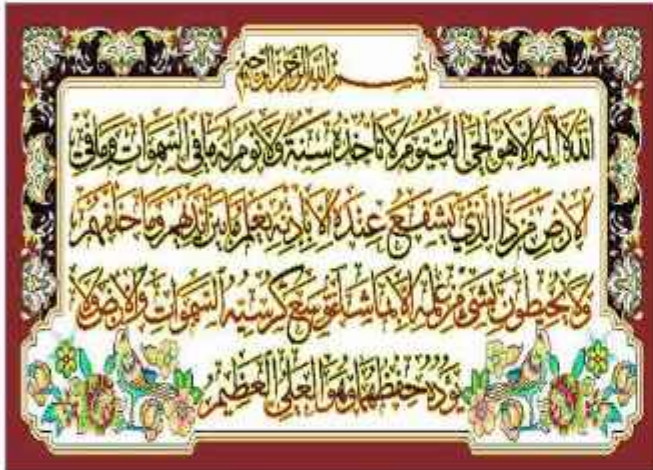 بسم الله الرحمن الرحيم
الله لا إله إلا هو الحي القيوم لا تأخذه سنة ولا نوم له ما في السموات وما في
الارض من ذا الذي يشفع عنده إلا بإذنه يعلم ما بين أيديهم وما خلفهم
ولا يحيطون بشيء من علمه إلا بما شاء وسع كرسيه السموات والارض ولا
يؤده حفظهما وهو العلي العظيم